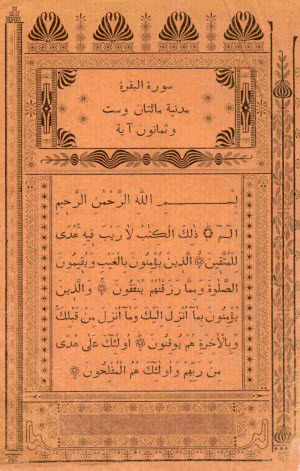 سورة البقرة
مدنية مائتان وست
وثمانون آية
بِسْمِ اللّٰهِ الرَّحْمٰنِ الرَّحِيمِ
الٓمٓ ۝ ذٰلِكَ الْكِتٰبُ لَا رَيْبَ فِيهِ هُدًى
لِلْمُتَّقِينَ ۝ الَّذِينَ يُؤْمِنُونَ بِالْغَيْبِ وَيُقِيمُونَ
الصَّلٰوةَ وَمِمَّا رَزَقْنٰهُمْ يُنْفِقُونَ ۝ وَالَّذِينَ
يُؤْمِنُونَ بِمَآ أُنْزِلَ إِلَيْكَ وَمَآ أُنْزِلَ مِنْ قَبْلِكَ
وَبِالْآخِرَةِ هُمْ يُوقِنُونَ ۝ أُولٰٓئِكَ عَلٰى هُدًى
مِنْ رَبِّهِمْ وَأُولٰٓئِكَ هُمُ الْمُفْلِحُونَ ۝